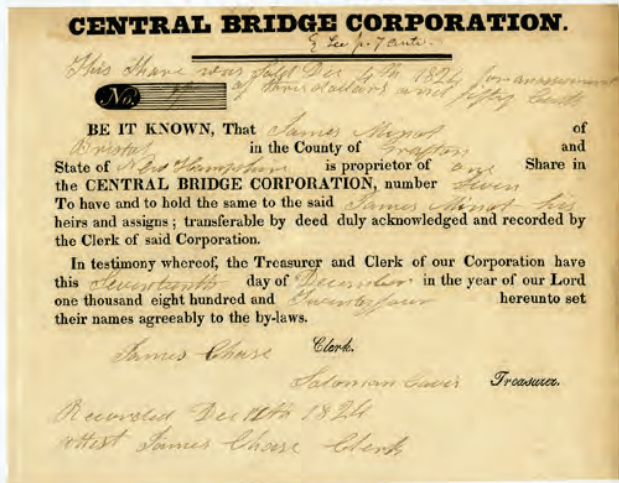 CENTRAL BRIDGE CORPORATION.
This Share was sold Dec 4th 1824 for an assessment
No. of three dollars and fifty Cents
BE IT KNOWN, That James Minot of
Bristol in the County of Grafton and
State of New Hampshire is proprietor of one Share in
the CENTRAL BRIDGE CORPORATION, number Seven
To have and to hold the same to the said James Minot his
heirs and assigns; transferable by deed duly acknowledged and recorded by
the Clerk of said Corporation.
In testimony whereof, the Treasurer and Clerk of our Corporation have
this Seventeenth day of December in the year of our Lord
one thousand eight hundred and Twentyfour hereunto set
their names agreeably to the by-laws.
James Chase Clerk.
Treasurer.
Recorded Dec 1824
Attest James Chase Clerk